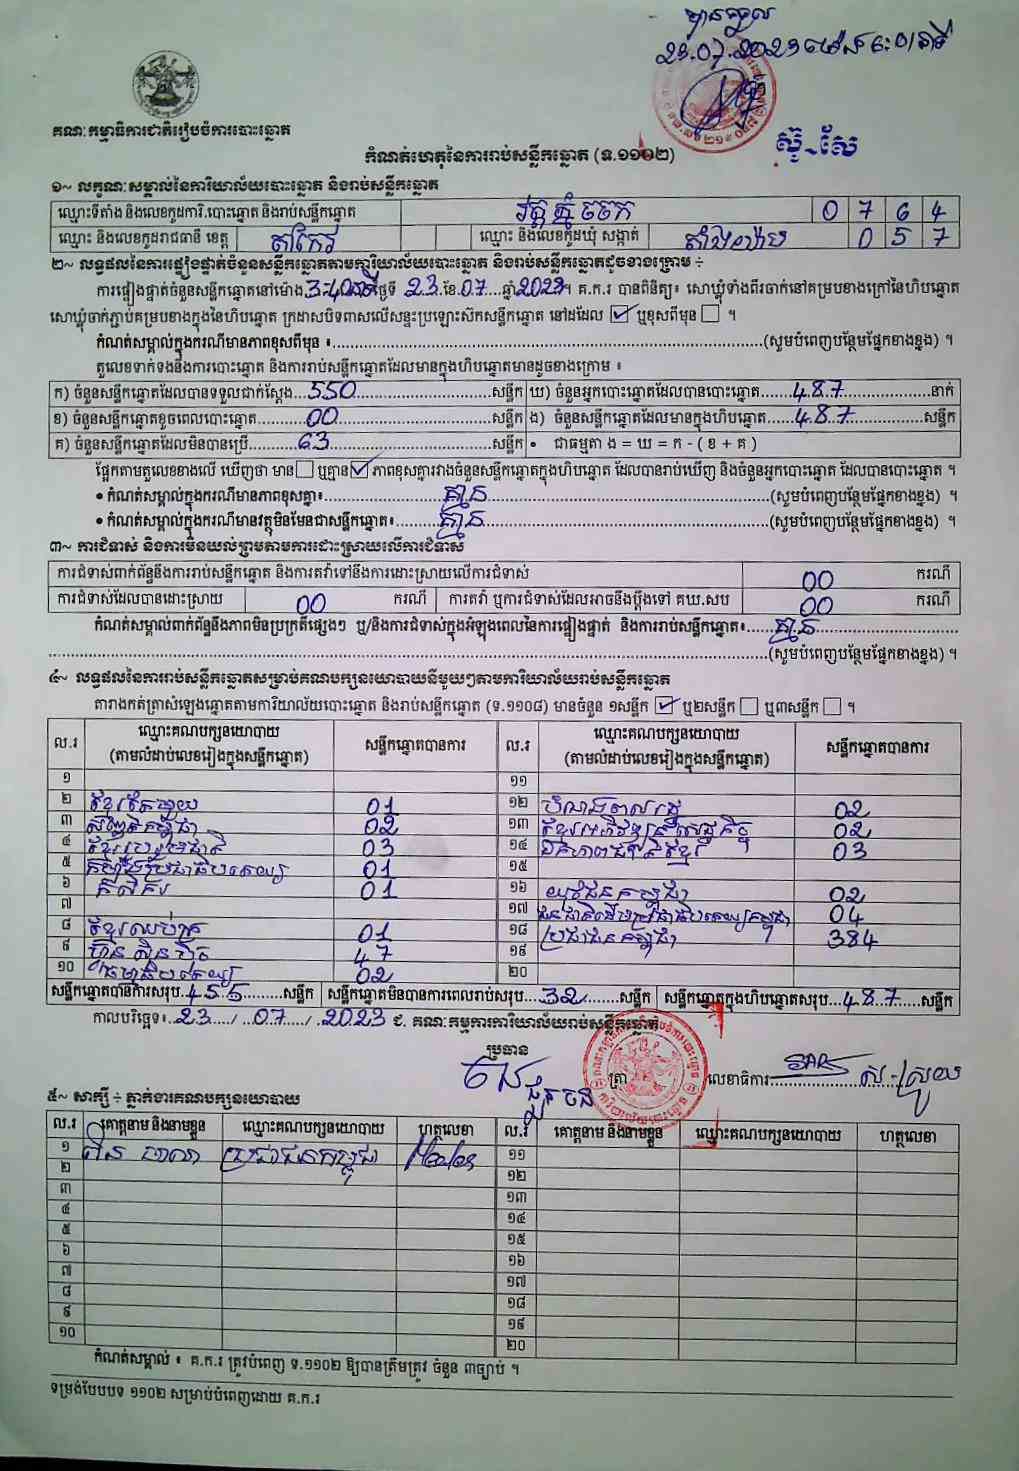 បានចូល
23.07.2023 ម៉ោង
គណៈកម្មាធិការជាតិរៀបចំការបោះឆ្នោត
ស៊ូ-សែ
កំណត់ហេតុនៃការរាប់សន្លឹកឆ្នោត (ទ.១១០២)
១~ លក្ខណៈសម្គាល់នៃការិយាល័យបោះឆ្នោត និងរាប់សន្លឹកឆ្នោត
ឈ្មោះទីតាំង និងលេខកូដការិ.បោះឆ្នោត និងរាប់សន្លឹកឆ្នោត វត្តភ្នំចចក 0 7 6 4
ឈ្មោះ និងលេខកូដរាជធានី ខេត្ត តាកែវ ឈ្មោះ និងលេខកូដឃុំ សង្កាត់ តាំងយ៉ាប 0 5 7
២~ លទ្ធផលនៃការផ្ទៀងផ្ទាត់ចំនួនសន្លឹកឆ្នោតតាមការិយាល័យបោះឆ្នោត និងរាប់សន្លឹកឆ្នោតដូចខាងក្រោម ÷
ការផ្ទៀងផ្ទាត់ចំនួនសន្លឹកឆ្នោតនៅម៉ោង 3:40នាទី ថ្ងៃទី 23 ខែ 07 ឆ្នាំ 2023។ គ.ក.រ បានពិនិត្យ៖ សោឃ្លុំទាំងពីរចាក់នៅគម្របខាងក្រៅនៃហិបឆ្នោត
សោឃ្លុំចាក់ភ្ជាប់គម្របខាងក្នុងនៃហិបឆ្នោត ក្រដាសបិទពាសលើសន្ទះប្រឡោះស៊កសន្លឹកឆ្នោត នៅដដែល ☑ ឬខុសពីមុន ☐ ។
កំណត់សម្គាល់ក្នុងករណីមានភាពខុសពីមុន ៖ (សូមបំពេញបន្ថែមផ្នែកខាងខ្នង) ។
តួលេខទាក់ទងនឹងការបោះឆ្នោត និងការរាប់សន្លឹកឆ្នោតដែលមានក្នុងហិបឆ្នោតមានដូចខាងក្រោម ៖
ក) ចំនួនសន្លឹកឆ្នោតដែលបានទទួលជាក់ស្តែង 550 សន្លឹក ឃ) ចំនួនអ្នកបោះឆ្នោតដែលបានបោះឆ្នោត 487 នាក់
ខ) ចំនួនសន្លឹកឆ្នោតខូចពេលបោះឆ្នោត 00 សន្លឹក ង) ចំនួនសន្លឹកឆ្នោតដែលមានក្នុងហិបឆ្នោត 487 សន្លឹក
គ) ចំនួនសន្លឹកឆ្នោតដែលមិនបានប្រើ 63 សន្លឹក • ជាធម្មតា ង = ឃ = ក - ( ខ + គ )
ផ្អែកតាមតួលេខខាងលើ ឃើញថា មាន ☐ ឬគ្មាន ☑ ភាពខុសគ្នារវាងចំនួនសន្លឹកឆ្នោតក្នុងហិបឆ្នោត ដែលបានរាប់ឃើញ និងចំនួនអ្នកបោះឆ្នោត ដែលបានបោះឆ្នោត ។
• កំណត់សម្គាល់ក្នុងករណីមានភាពខុសគ្នា៖ គ្មាន (សូមបំពេញបន្ថែមផ្នែកខាងខ្នង) ។
• កំណត់សម្គាល់ក្នុងករណីមានវត្ថុមិនមែនជាសន្លឹកឆ្នោត៖ គ្មាន (សូមបំពេញបន្ថែមផ្នែកខាងខ្នង) ។
៣~ ការជំទាស់ និងការមិនយល់ព្រមតាមការដោះស្រាយលើការជំទាស់
ការជំទាស់ពាក់ព័ន្ធនឹងការរាប់សន្លឹកឆ្នោត និងការតវ៉ាទៅនឹងការដោះស្រាយលើការជំទាស់ 00 ករណី
ការជំទាស់ដែលបានដោះស្រាយ 00 ករណី ការតវ៉ា ឬការជំទាស់ដែលអាចនឹងប្តឹងទៅ គឃ.សប 00 ករណី
កំណត់សម្គាល់ពាក់ព័ន្ធនឹងភាពមិនប្រក្រតីផ្សេងៗ ឬ/និងការជំទាស់ក្នុងអំឡុងពេលនៃការផ្ទៀងផ្ទាត់ និងការរាប់សន្លឹកឆ្នោត៖ គ្មាន
(សូមបំពេញបន្ថែមផ្នែកខាងខ្នង) ។
៤~ លទ្ធផលនៃការរាប់សន្លឹកឆ្នោតសម្រាប់គណបក្សនយោបាយនីមួយៗតាមការិយាល័យរាប់សន្លឹកឆ្នោត
តារាងកត់ត្រាសំឡេងឆ្នោតតាមការិយាល័យបោះឆ្នោត និងរាប់សន្លឹកឆ្នោត (ទ.១១០៨) មានចំនួន ១សន្លឹក ☑ ឬ២សន្លឹក ☐ ឬ៣សន្លឹក ☐ ។
ល.រ ឈ្មោះគណបក្សនយោបាយ (តាមលំដាប់លេខរៀងក្នុងសន្លឹកឆ្នោត) សន្លឹកឆ្នោតបានការ ល.រ ឈ្មោះគណបក្សនយោបាយ (តាមលំដាប់លេខរៀងក្នុងសន្លឹកឆ្នោត) សន្លឹកឆ្នោតបានការ
១ ១១
២ ខ្មែរតែមួយ 01 ១២ បំណងពលរដ្ឋ 02
៣ សញ្ជាតិកម្ពុជា 02 ១៣ ខ្មែរអភិវឌ្ឍន៍សេដ្ឋកិច្ច 02
៤ ខ្មែររួបរួមជាតិ 03 ១៤ ឯកភាពជាតិខ្មែរ 03
៥ កម្លាំងប្រជាធិបតេយ្យ 01 ១៥
៦ កសិករ 01 ១៦ យុវជនកម្ពុជា 02
៧ ១៧ ជនជាតិដើមប្រជាធិបតេយ្យកម្ពុជា 04
៨ ខ្មែរឈប់ក្រ 01 ១៨ ប្រជាជនកម្ពុជា 384
៩ ហ៊្វុនស៊ិនប៉ិច 47 ១៩
១០ ធម្មាធិបតេយ្យ 02 ២០
សន្លឹកឆ្នោតបានការសរុប 455 សន្លឹក សន្លឹកឆ្នោតមិនបានការពេលរាប់សរុប 32 សន្លឹក សន្លឹកឆ្នោតក្នុងហិបឆ្នោតសរុប 487 សន្លឹក
កាលបរិច្ឆេទ៖ 23 / 07 / 2023 ជ. គណៈកម្មការការិយាល័យរាប់សន្លឹកឆ្នោត
ប្រធាន
ត្រា លេខាធិការ ស-ស្រួយ
៥~ សាក្សី ÷ ភ្នាក់ងារគណបក្សនយោបាយ
ល.រ គោត្តនាម និងនាមខ្លួន ឈ្មោះគណបក្សនយោបាយ ហត្ថលេខា ល.រ គោត្តនាម និងនាមខ្លួន ឈ្មោះគណបក្សនយោបាយ ហត្ថលេខា
១ ប្រជាជនកម្ពុជា ១១
២ ១២
៣ ១៣
៤ ១៤
៥ ១៥
៦ ១៦
៧ ១៧
៨ ១៨
៩ ១៩
១០ ២០
កំណត់សម្គាល់ ៖ គ.ក.រ ត្រូវបំពេញ ទ.១១០២ ឱ្យបានត្រឹមត្រូវ ចំនួន ៣ច្បាប់ ។
ទម្រង់បែបបទ ១១០២ សម្រាប់បំពេញដោយ គ.ក.រ